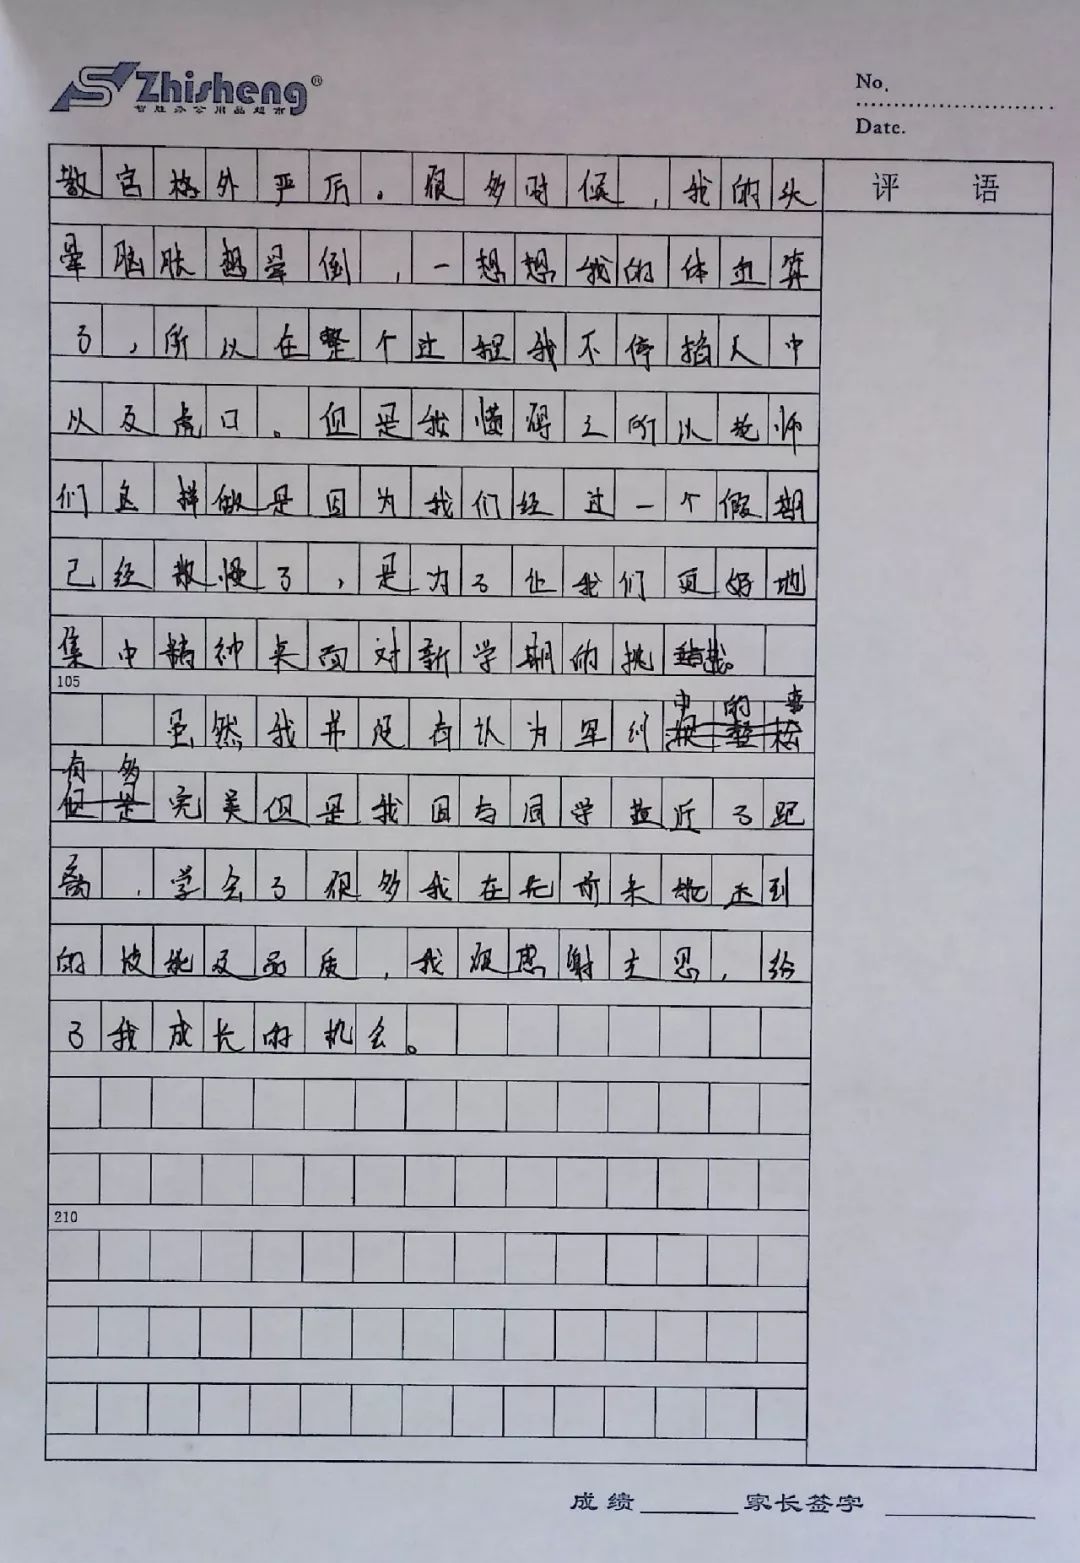 Zhisheng®
智胜办公用品超市
No.
Date.
评 语
教官格外严厉。很多时候,我的头
晕脑胀想晕倒,一想想我的体血算
了,所以在整个过程我不停掐人中
以及虎口。但是我懂得之所以老师
们这样做是因为我们经过一个假期
已经散慢了,是为了让我们更好地
集中精神来面对新学期的挑战。
105
中的事
虽然我并没有认为军训
有多
但是完美但是我因与同学拉近了距
离,学会了很多我在先前未能达到
的技能及品质,我很感谢立思,给
了我成长的机会。
210
成绩 家长签字